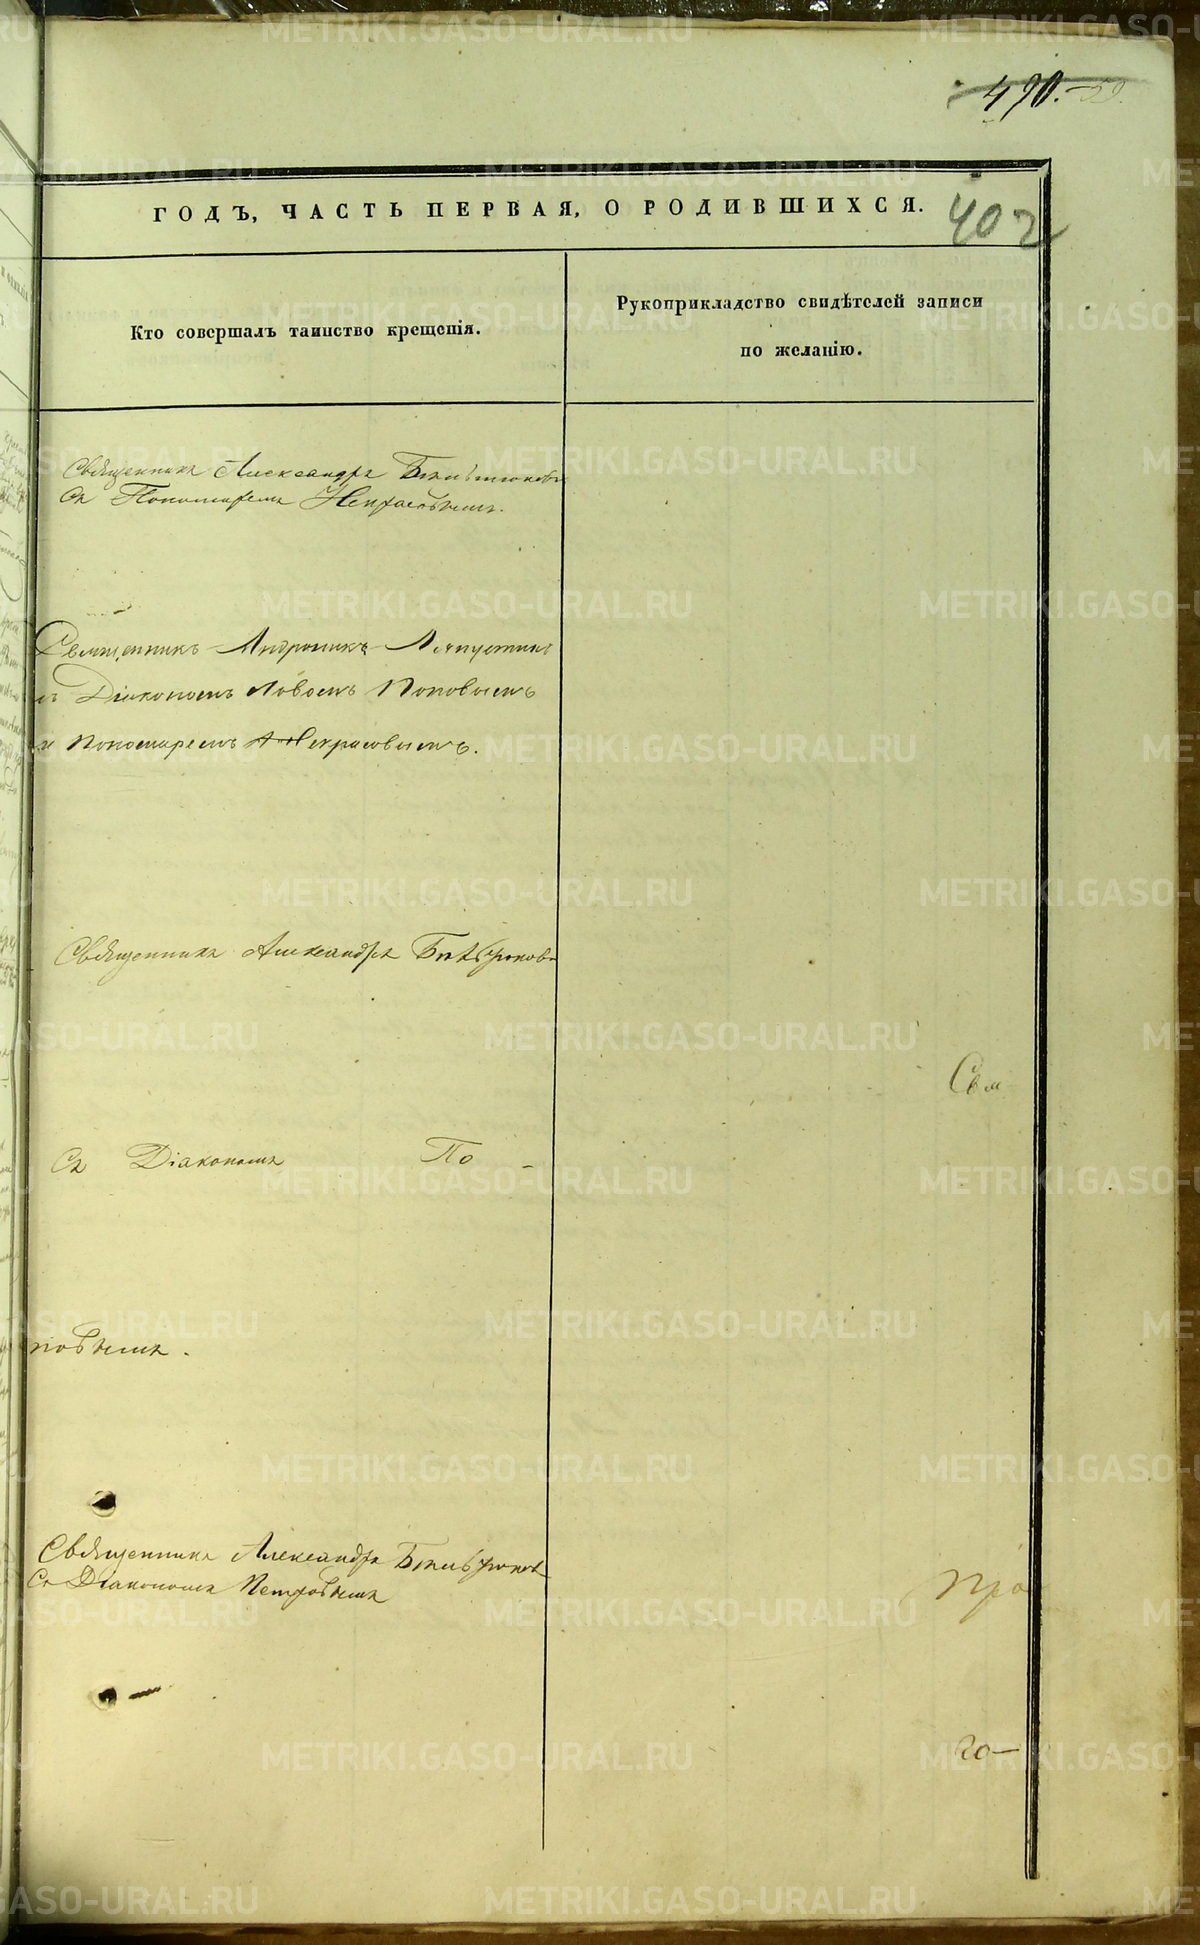 490. 59.
ГОДЪ, ЧАСТЬ ПЕРВАЯ, О РОДИВШИХСЯ.
402
Кто совершалъ таинство крещенія.
Рукоприкладство свидѣтелей записи
по желанію.
Священникъ Александръ
Съ Пономаремъ Некрасовымъ.
Священникъ Андроникъ Ляпустинъ
съ Діакономъ Іовомъ Поповымъ
и Пономаремъ Некрасовымъ.
Священникъ Александръ
Свя
Съ Діакономъ По -
повымъ.
Священникъ Александръ
Съ Діакономъ Петровымъ
Про
го-
METRIKI.GASO-URAL.RU